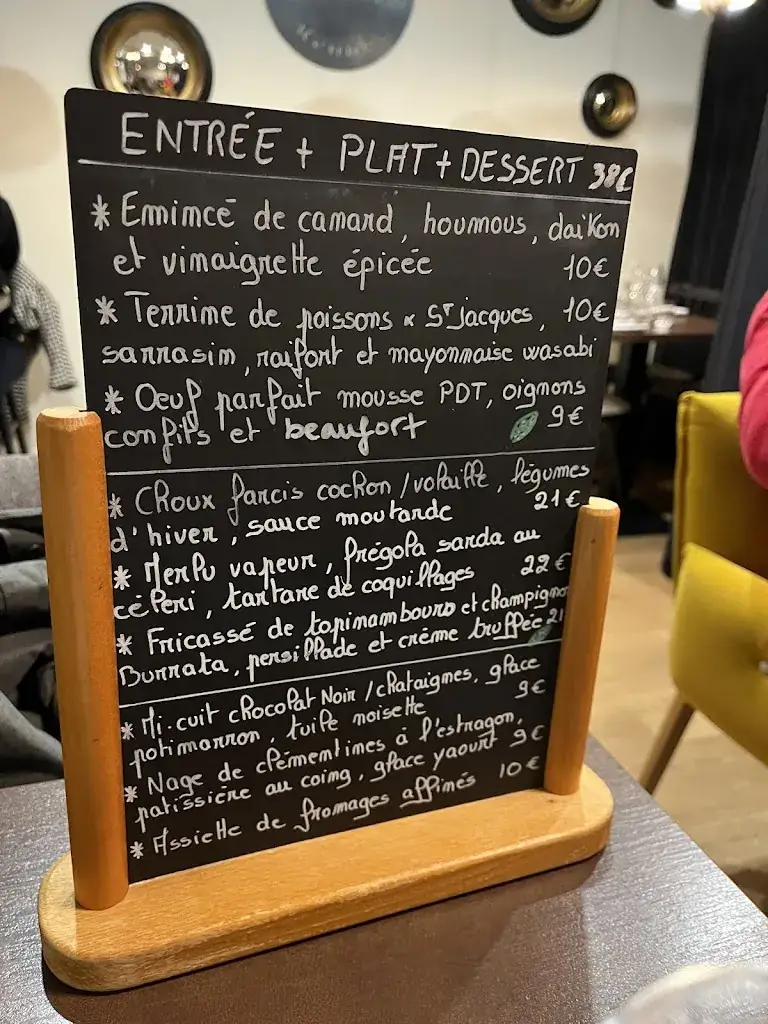 ENTRÉE + PLAT + DESSERT 38€
* Emincé de canard, houmous, daïkon
et vinaigrette épicée 10€
* Terrine de poissons & St Jacques, 10€
sarrasin, raifort et mayonnaise wasabi
* Oeuf parfait mousse PDT, oignons
confits et beaufort 9€
* Choux farcis cochon/volaille, légumes
d'hiver, sauce moutarde 21€
* Merlu vapeur, frégola sarda au
céleri, tartare de coquillages 22€
* Fricassé de topinambours et champignon
Burrata, persillade et crème truffée 21
* Mi.cuit chocolat Noir/chataignes, glace
potimarron, tuile noisette 9€
* Nage de clémentines à l'estragon,
patissière au coing, glace yaourt 9€
* Assiette de fromages affinés 10€